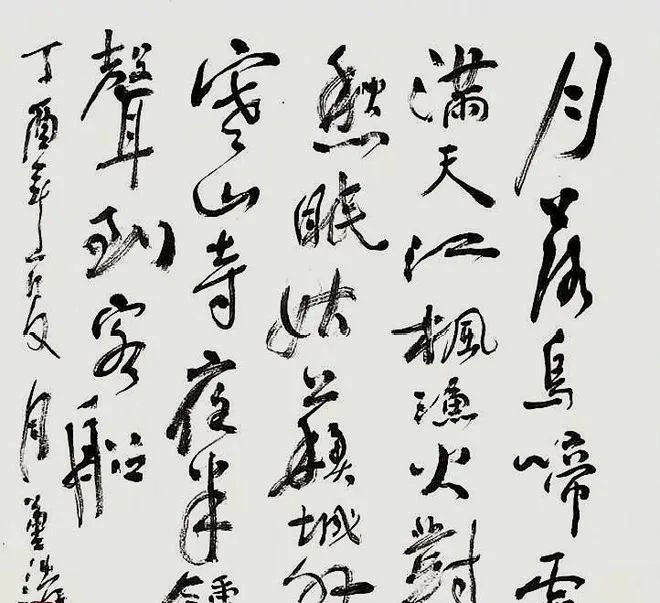 月落烏啼
滿天江楓漁火對
愁眠姑蘇城外
寒山寺夜半鐘
聲到客船
丁酉年夏月